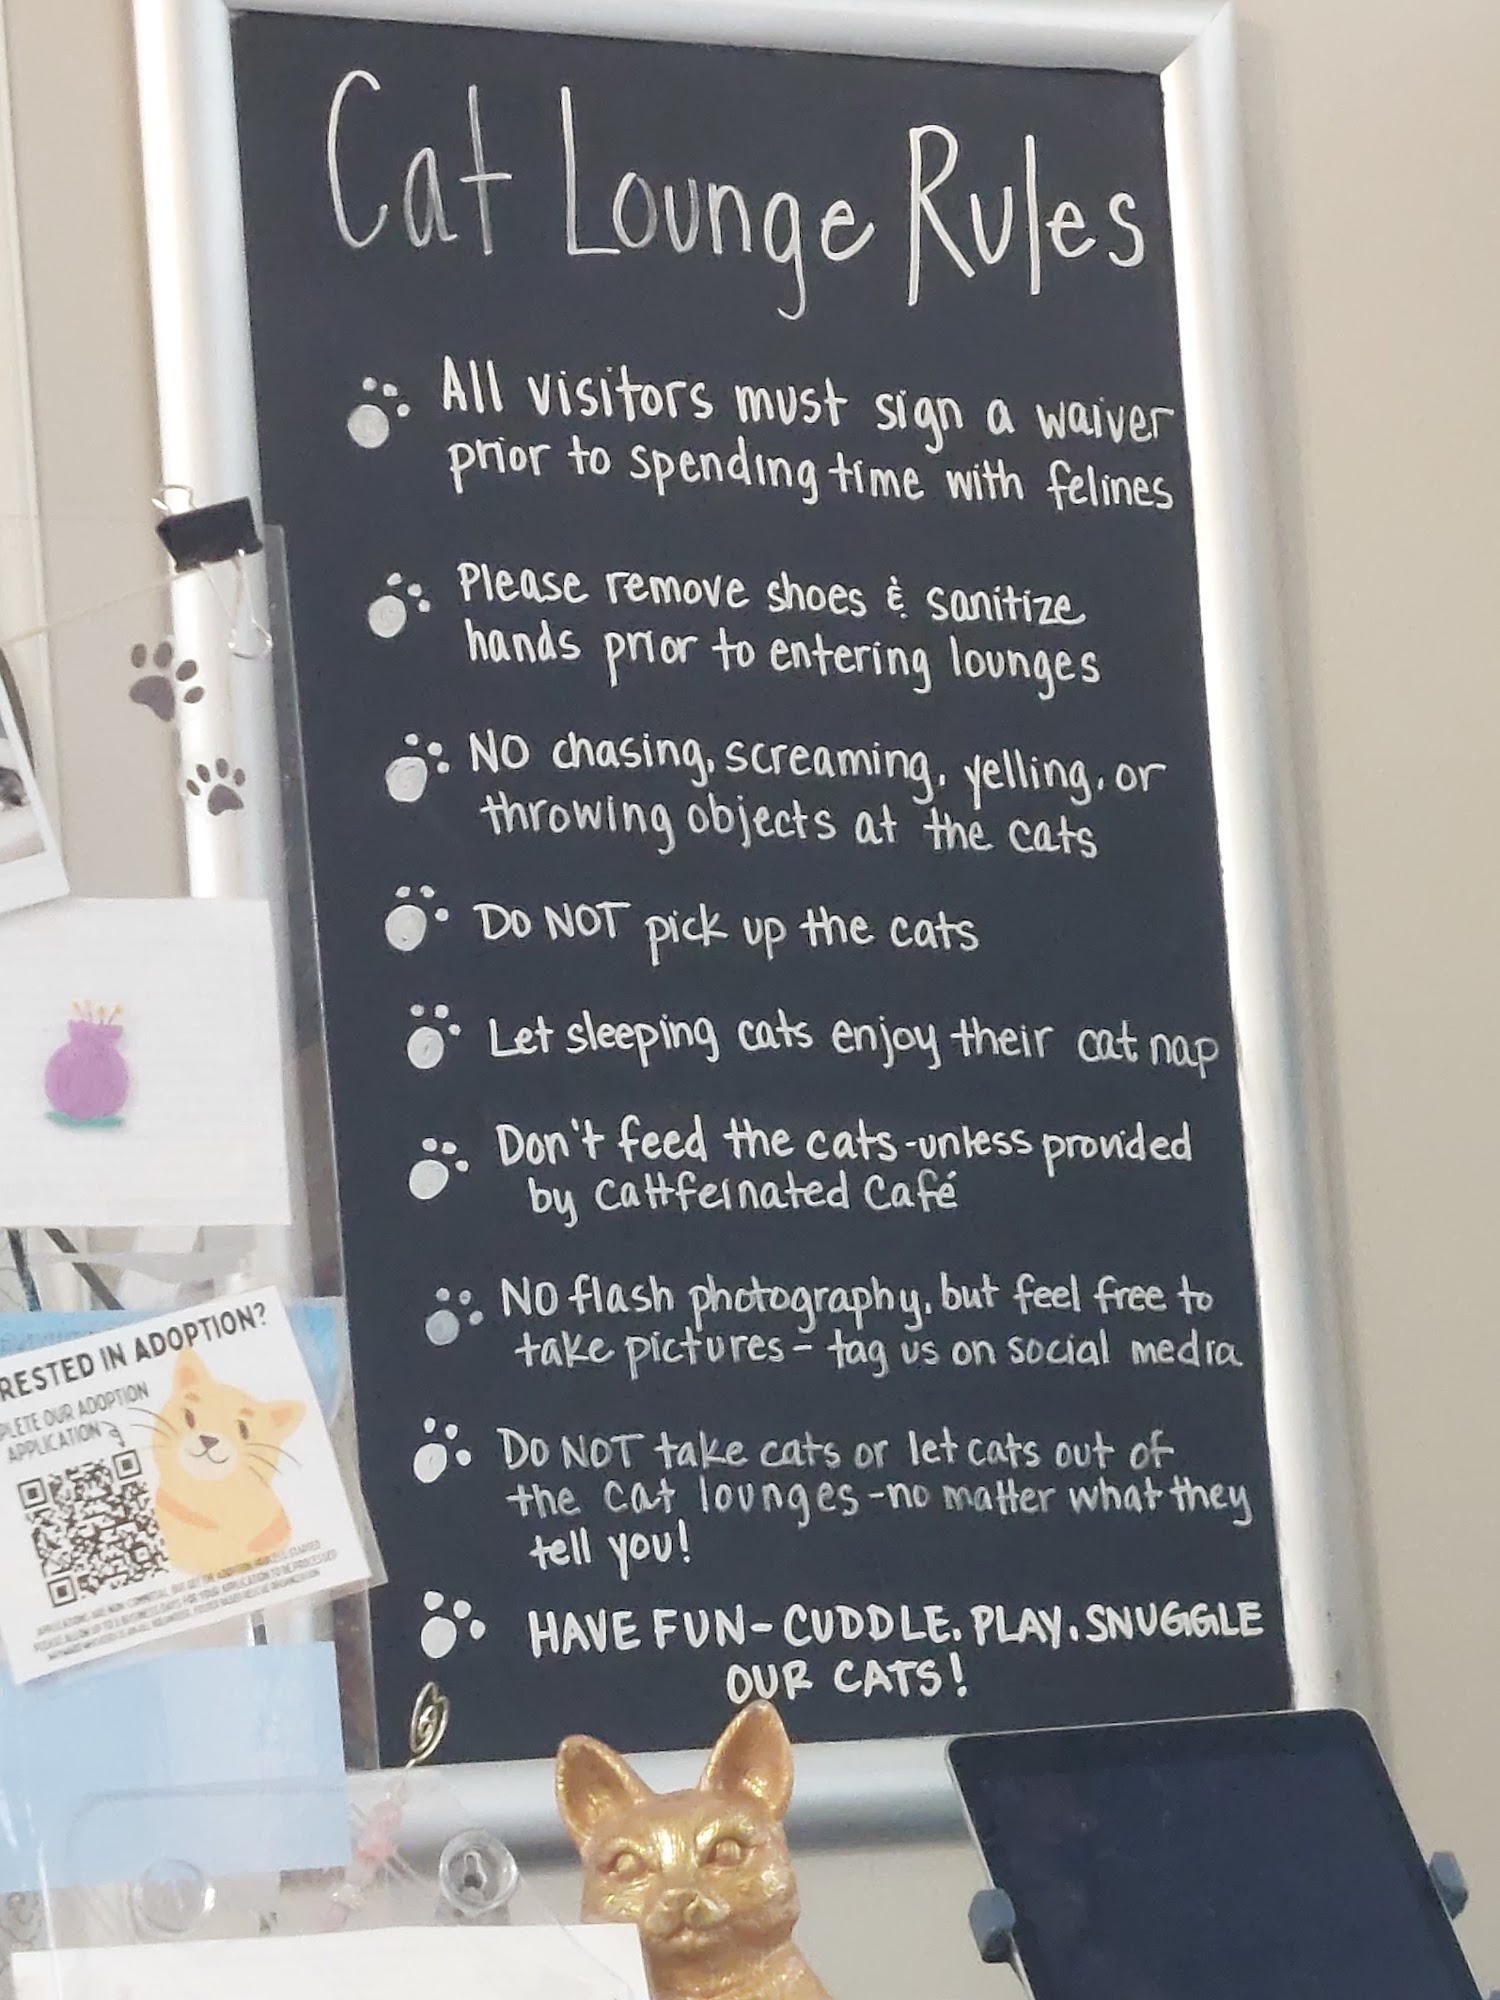 Cat Lounge Rules
All visitors must sign a waiver
prior to spending time with felines
Please remove shoes & sanitize
hands prior to entering lounges
NO chasing, screaming, yelling, or
throwing objects at the cats
Do NOT pick up the cats
Let sleeping cats enjoy their cat nap
Don't feed the cats - unless provided
by Cattfeinated Café
NO flash photography, but feel free to
take pictures - tag us on social media
Do NOT take cats or let cats out of
the cat lounges - no matter what they
tell you!
HAVE FUN - CUDDLE, PLAY, SNUGGLE
OUR CATS!
RESTED IN ADOPTION?
PLETE OUR ADOPTION
APPLICATION